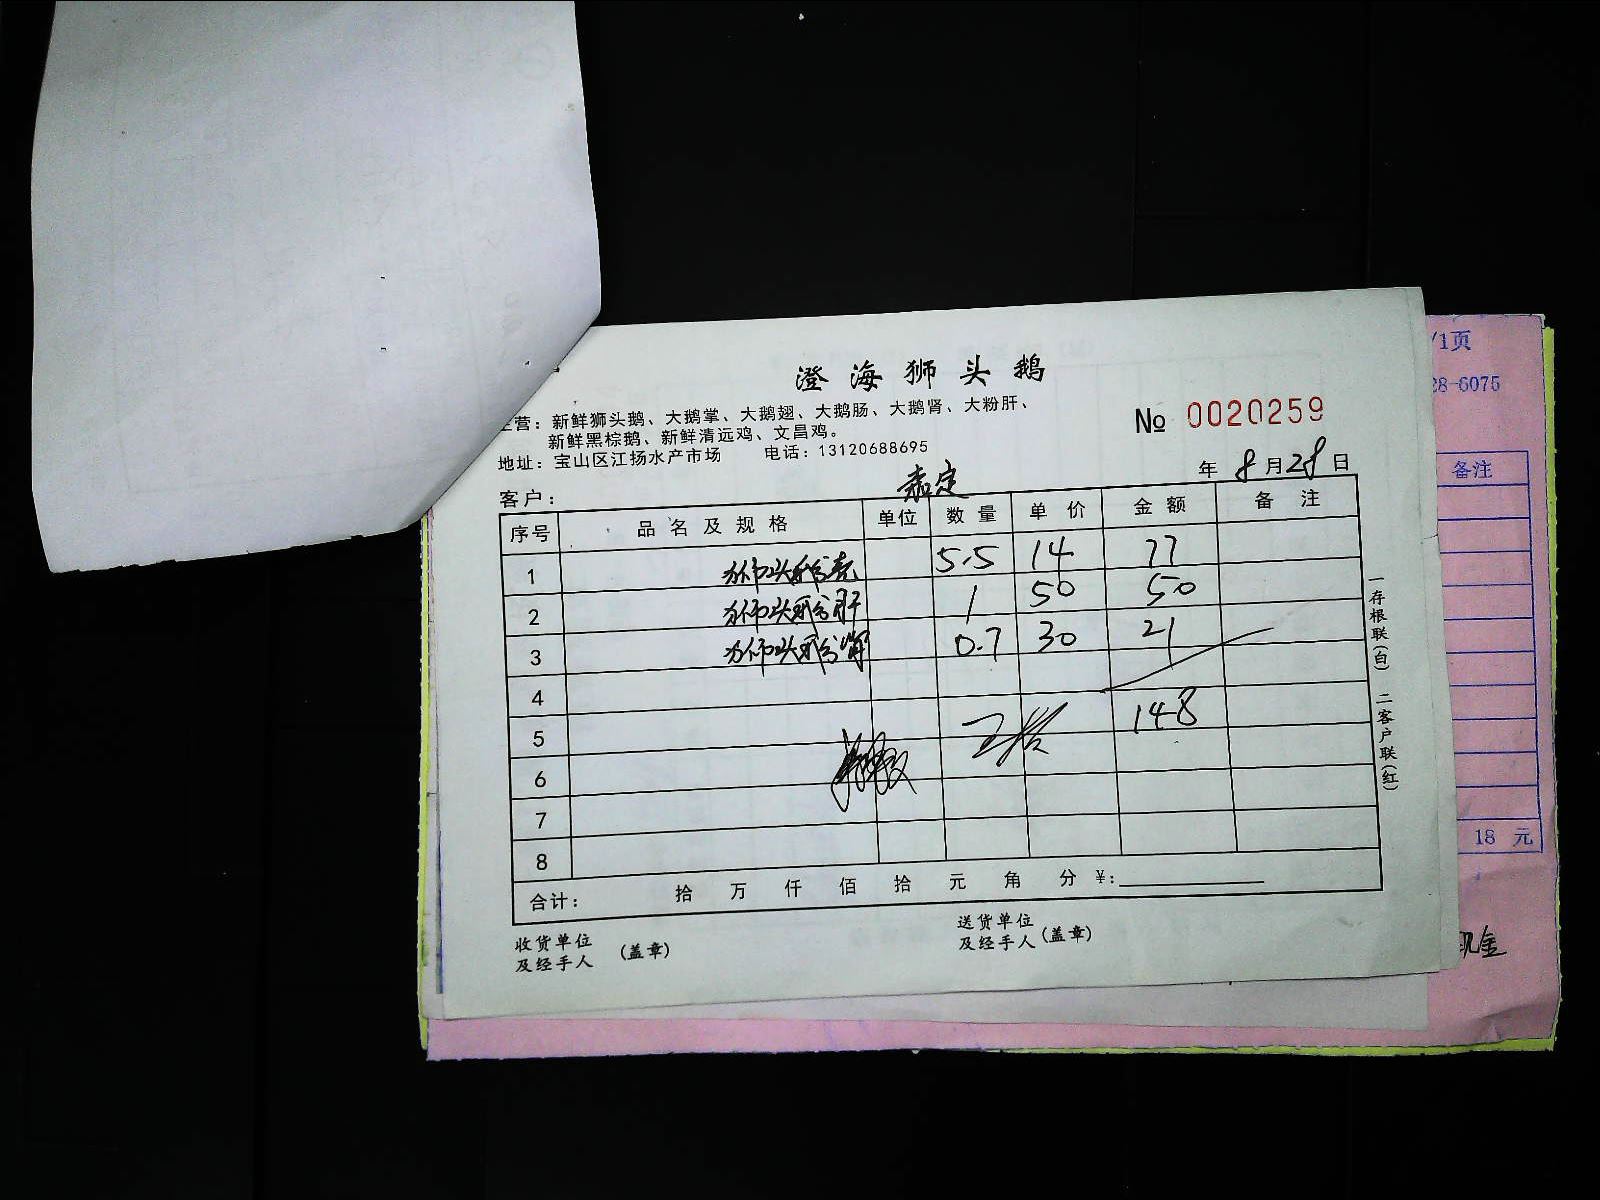 澄海狮头鹅
主营：新鲜狮头鹅、大鹅掌、大鹅翅、大鹅肠、大鹅肾、大粉肝、
新鲜黑棕鹅、新鲜清远鸡、文昌鸡。
地址：宝山区江扬水产市场 电话：13120688695
№ 0020259
年 8 月 28 日
客户： 嘉定
序号 品名及规格 单位 数量 单价 金额 备注
1 狮头鹅 5.5 14 77
2 狮头鹅肝 1 50 50
3 狮头鹅肾 0.7 30 21
4
5 148
6
7
8
合计： 拾 万 仟 佰 拾 元 角 分 ¥：
收货单位
及经手人 (盖章)
送货单位
及经手人 (盖章)
一存根联(白) 二客户联(红)
/1页
28-6075
备注
18 元
现金